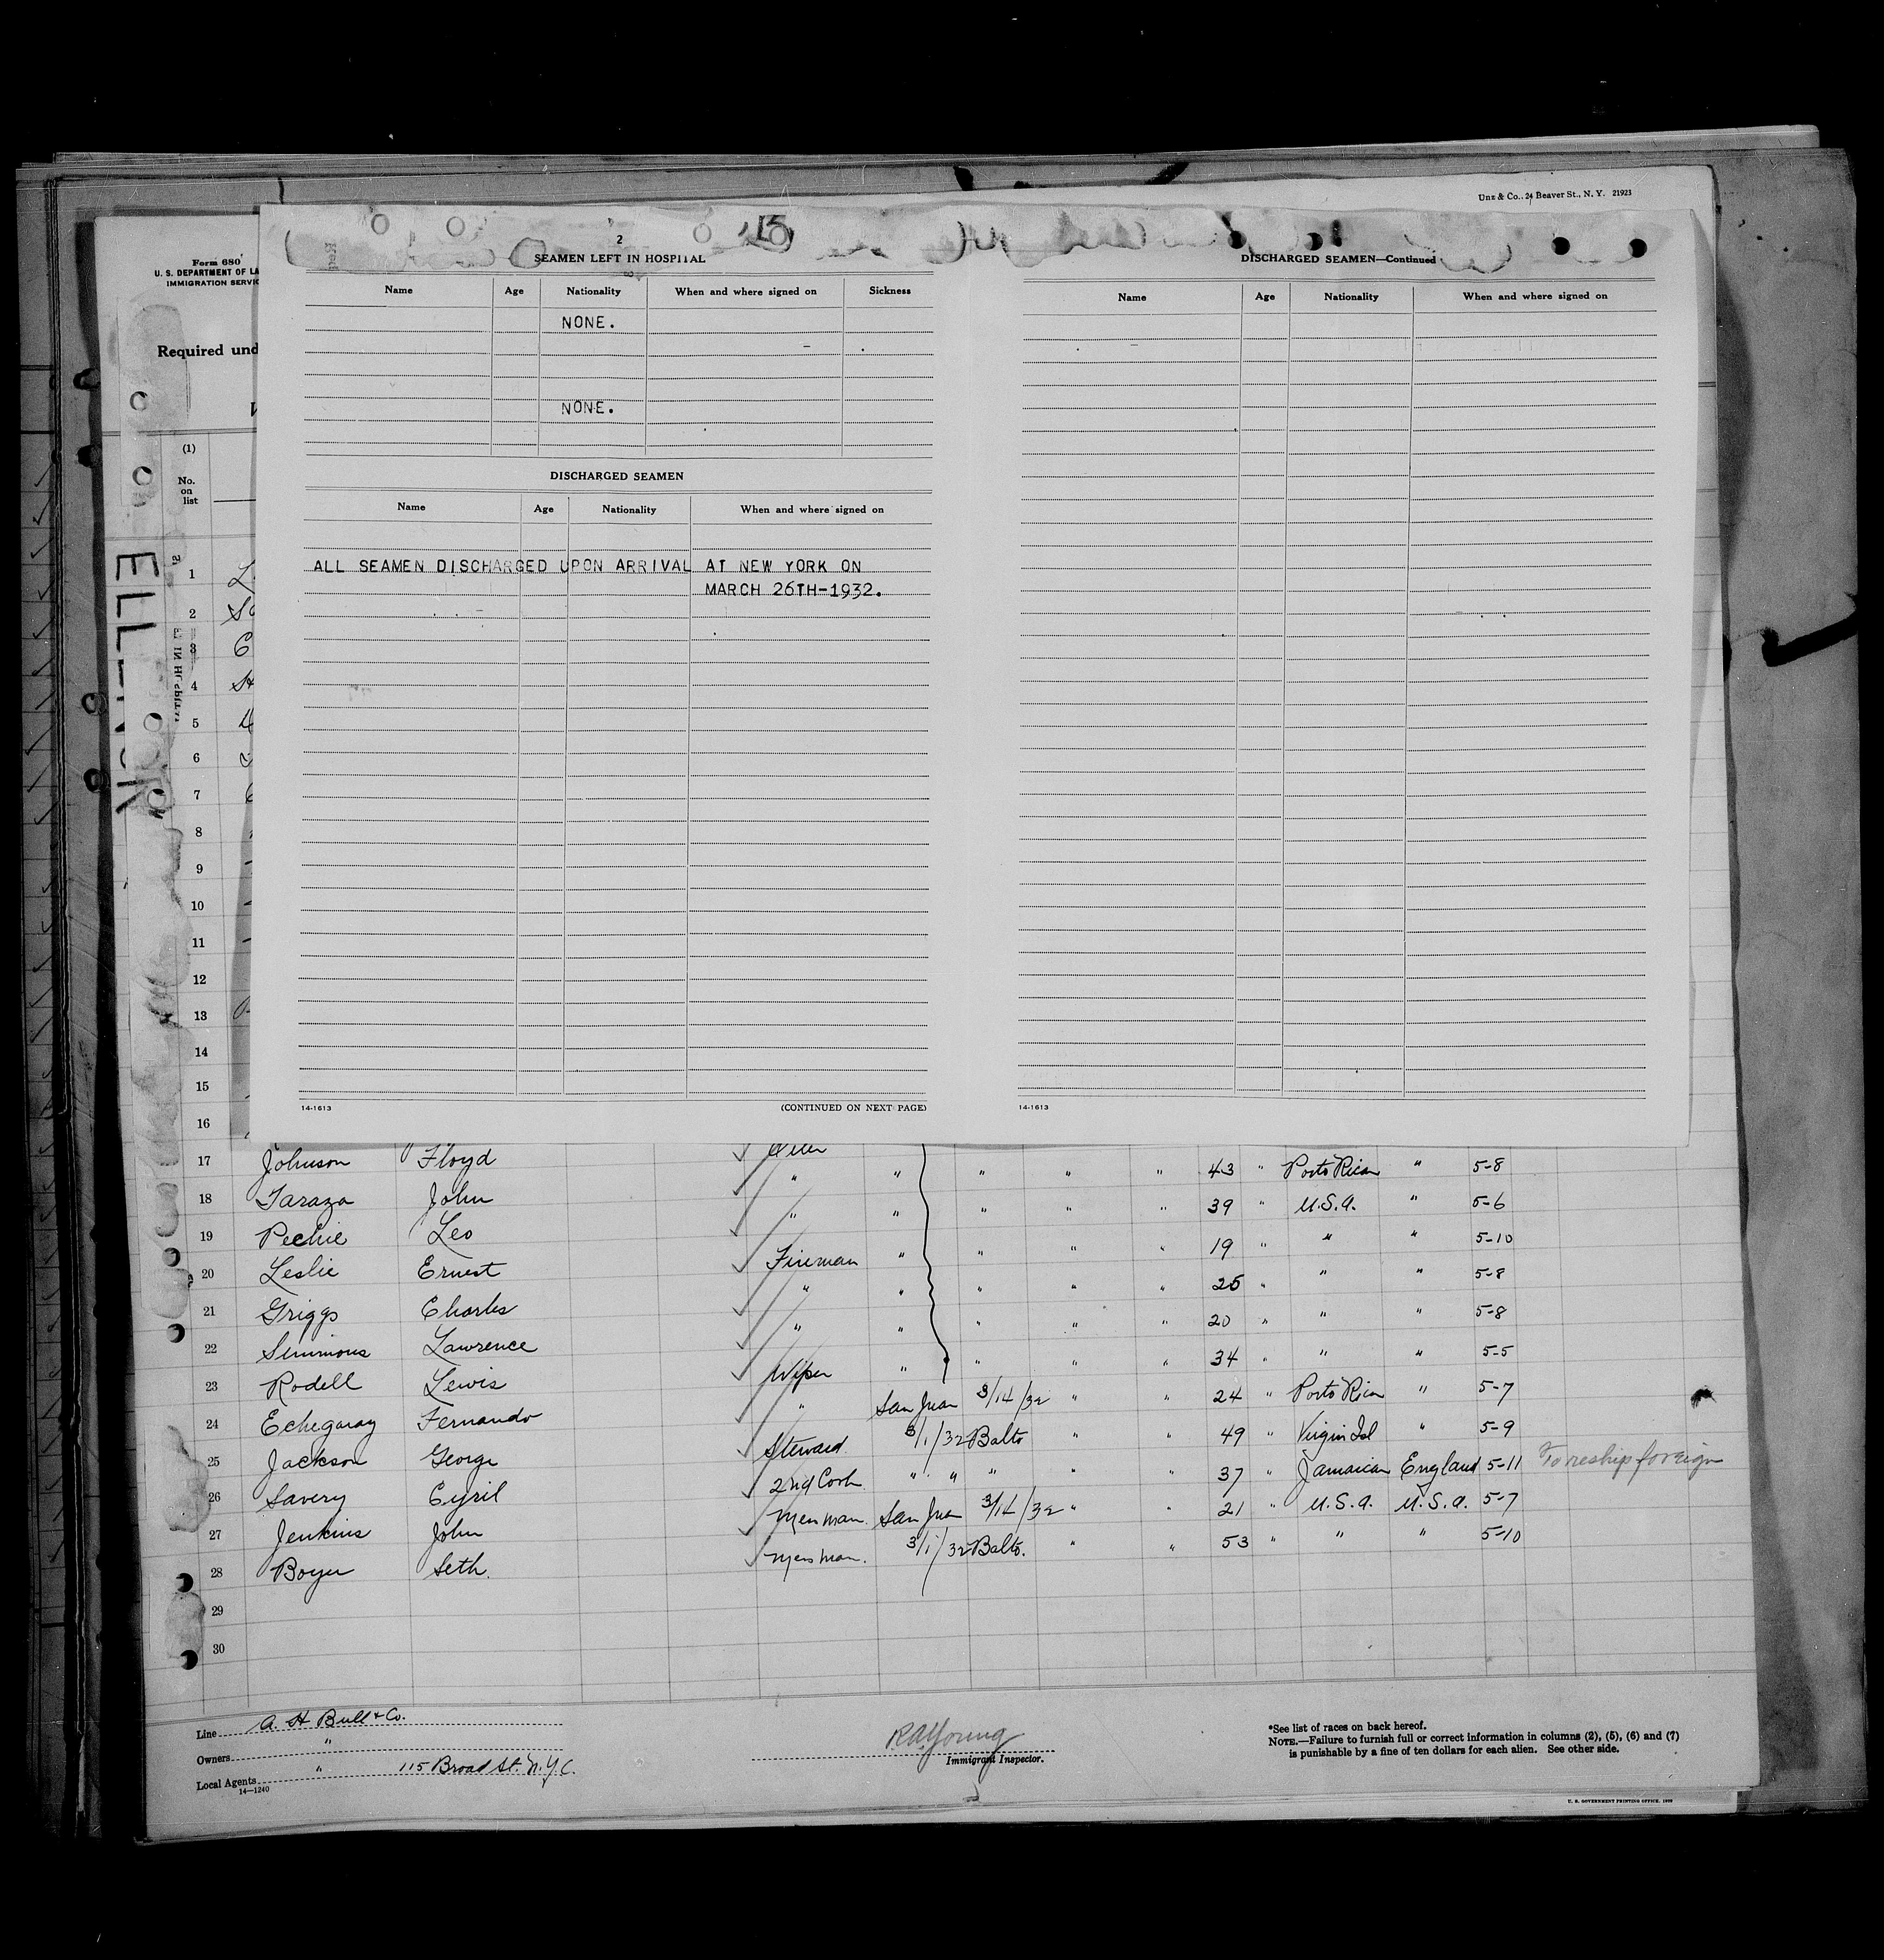 Unz & Co., 24 Beaver St., N. Y. 21923
Form 680
U. S. DEPARTMENT OF LA
IMMIGRATION SERVIC
Required und
(1)
No. on list
ELLENOR
2
SEAMEN LEFT IN HOSPITAL
Name Age Nationality When and where signed on Sickness
NONE.
NONE.
DISCHARGED SEAMEN
Name Age Nationality When and where signed on
ALL SEAMEN DISCHARGED UPON ARRIVAL AT NEW YORK ON
MARCH 26TH-1932.
14-1613
(CONTINUED ON NEXT PAGE)
DISCHARGED SEAMEN—Continued
Name Age Nationality When and where signed on
14-1613
1
2
3
4
5
6
7
8
9
10
11
12
13
14
15
16 Oiler
17 Johnson Floyd " " " " " 43 " Porto Rican " 5-8
18 Taraza John " " " " " 39 " U.S.A. " 5-6
19 Pechie Leo Fireman " " " " 19 " " " 5-10
20 Leslie Ernest " " " " " 25 " " " 5-8
21 Griggs Charles " " " " " 20 " " " 5-8
22 Simmons Lawrence Wiper " " " " 34 " " " 5-5
23 Rodell Lewis " San Juan 3/14/32 " " 24 " Porto Rican " 5-7
24 Echegaray Fernando Steward 3/1/32 Balto " " 49 " Virgin Isl " 5-9
25 Jackson George 2nd Cook " " " " " 37 " Jamaican England 5-11 To reship foreign
26 Savery Cyril Mess man San Juan 3/14/32 " " 21 " U.S.A. U.S.A. 5-7
27 Jenkins John Mess man. 3/1/32 Balto. " " 53 " " " 5-10
28 Boyer Seth.
29
30
Line A. H Bull & Co.
Owners "
Local Agents " 115 Broad St. N.Y.C.
14—1240
R A Young
Immigrant Inspector.
*See list of races on back hereof.
NOTE.—Failure to furnish full or correct information in columns (2), (5), (6) and (7)
is punishable by a fine of ten dollars for each alien. See other side.
U. S. GOVERNMENT PRINTING OFFICE.